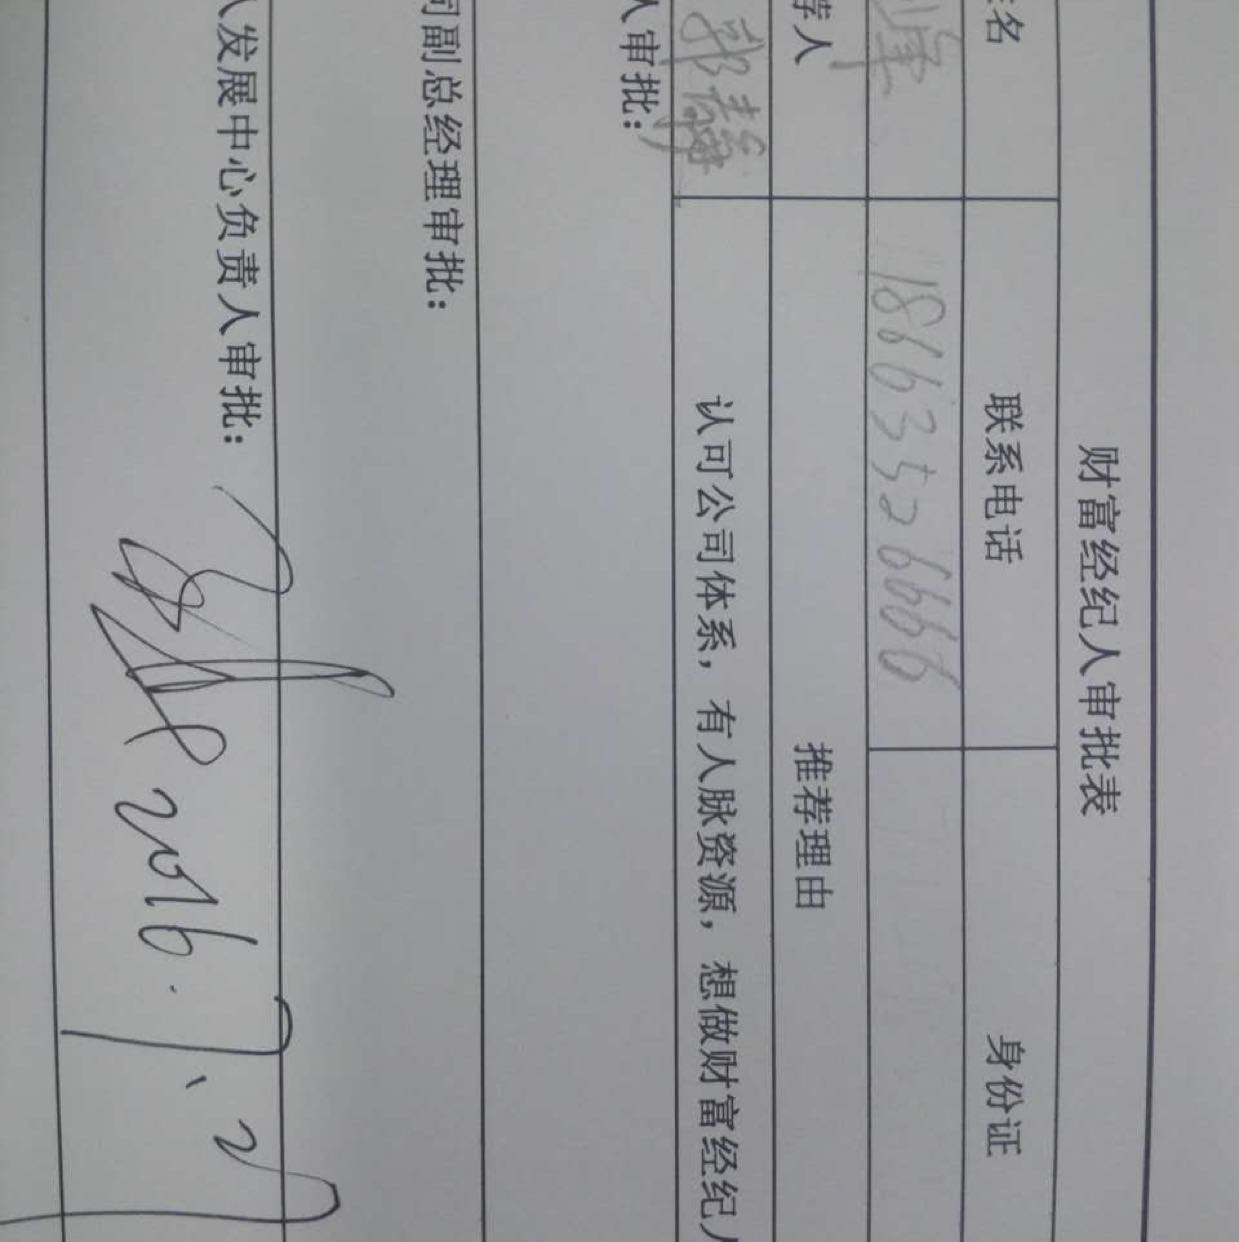 财富经纪人审批表
名 联系电话 身份证
18663526666
荐人 推荐理由
郭 认可公司体系，有人脉资源，想做财富经纪人
人审批：
司副总经理审批：
人发展中心负责人审批：
2016.7.27